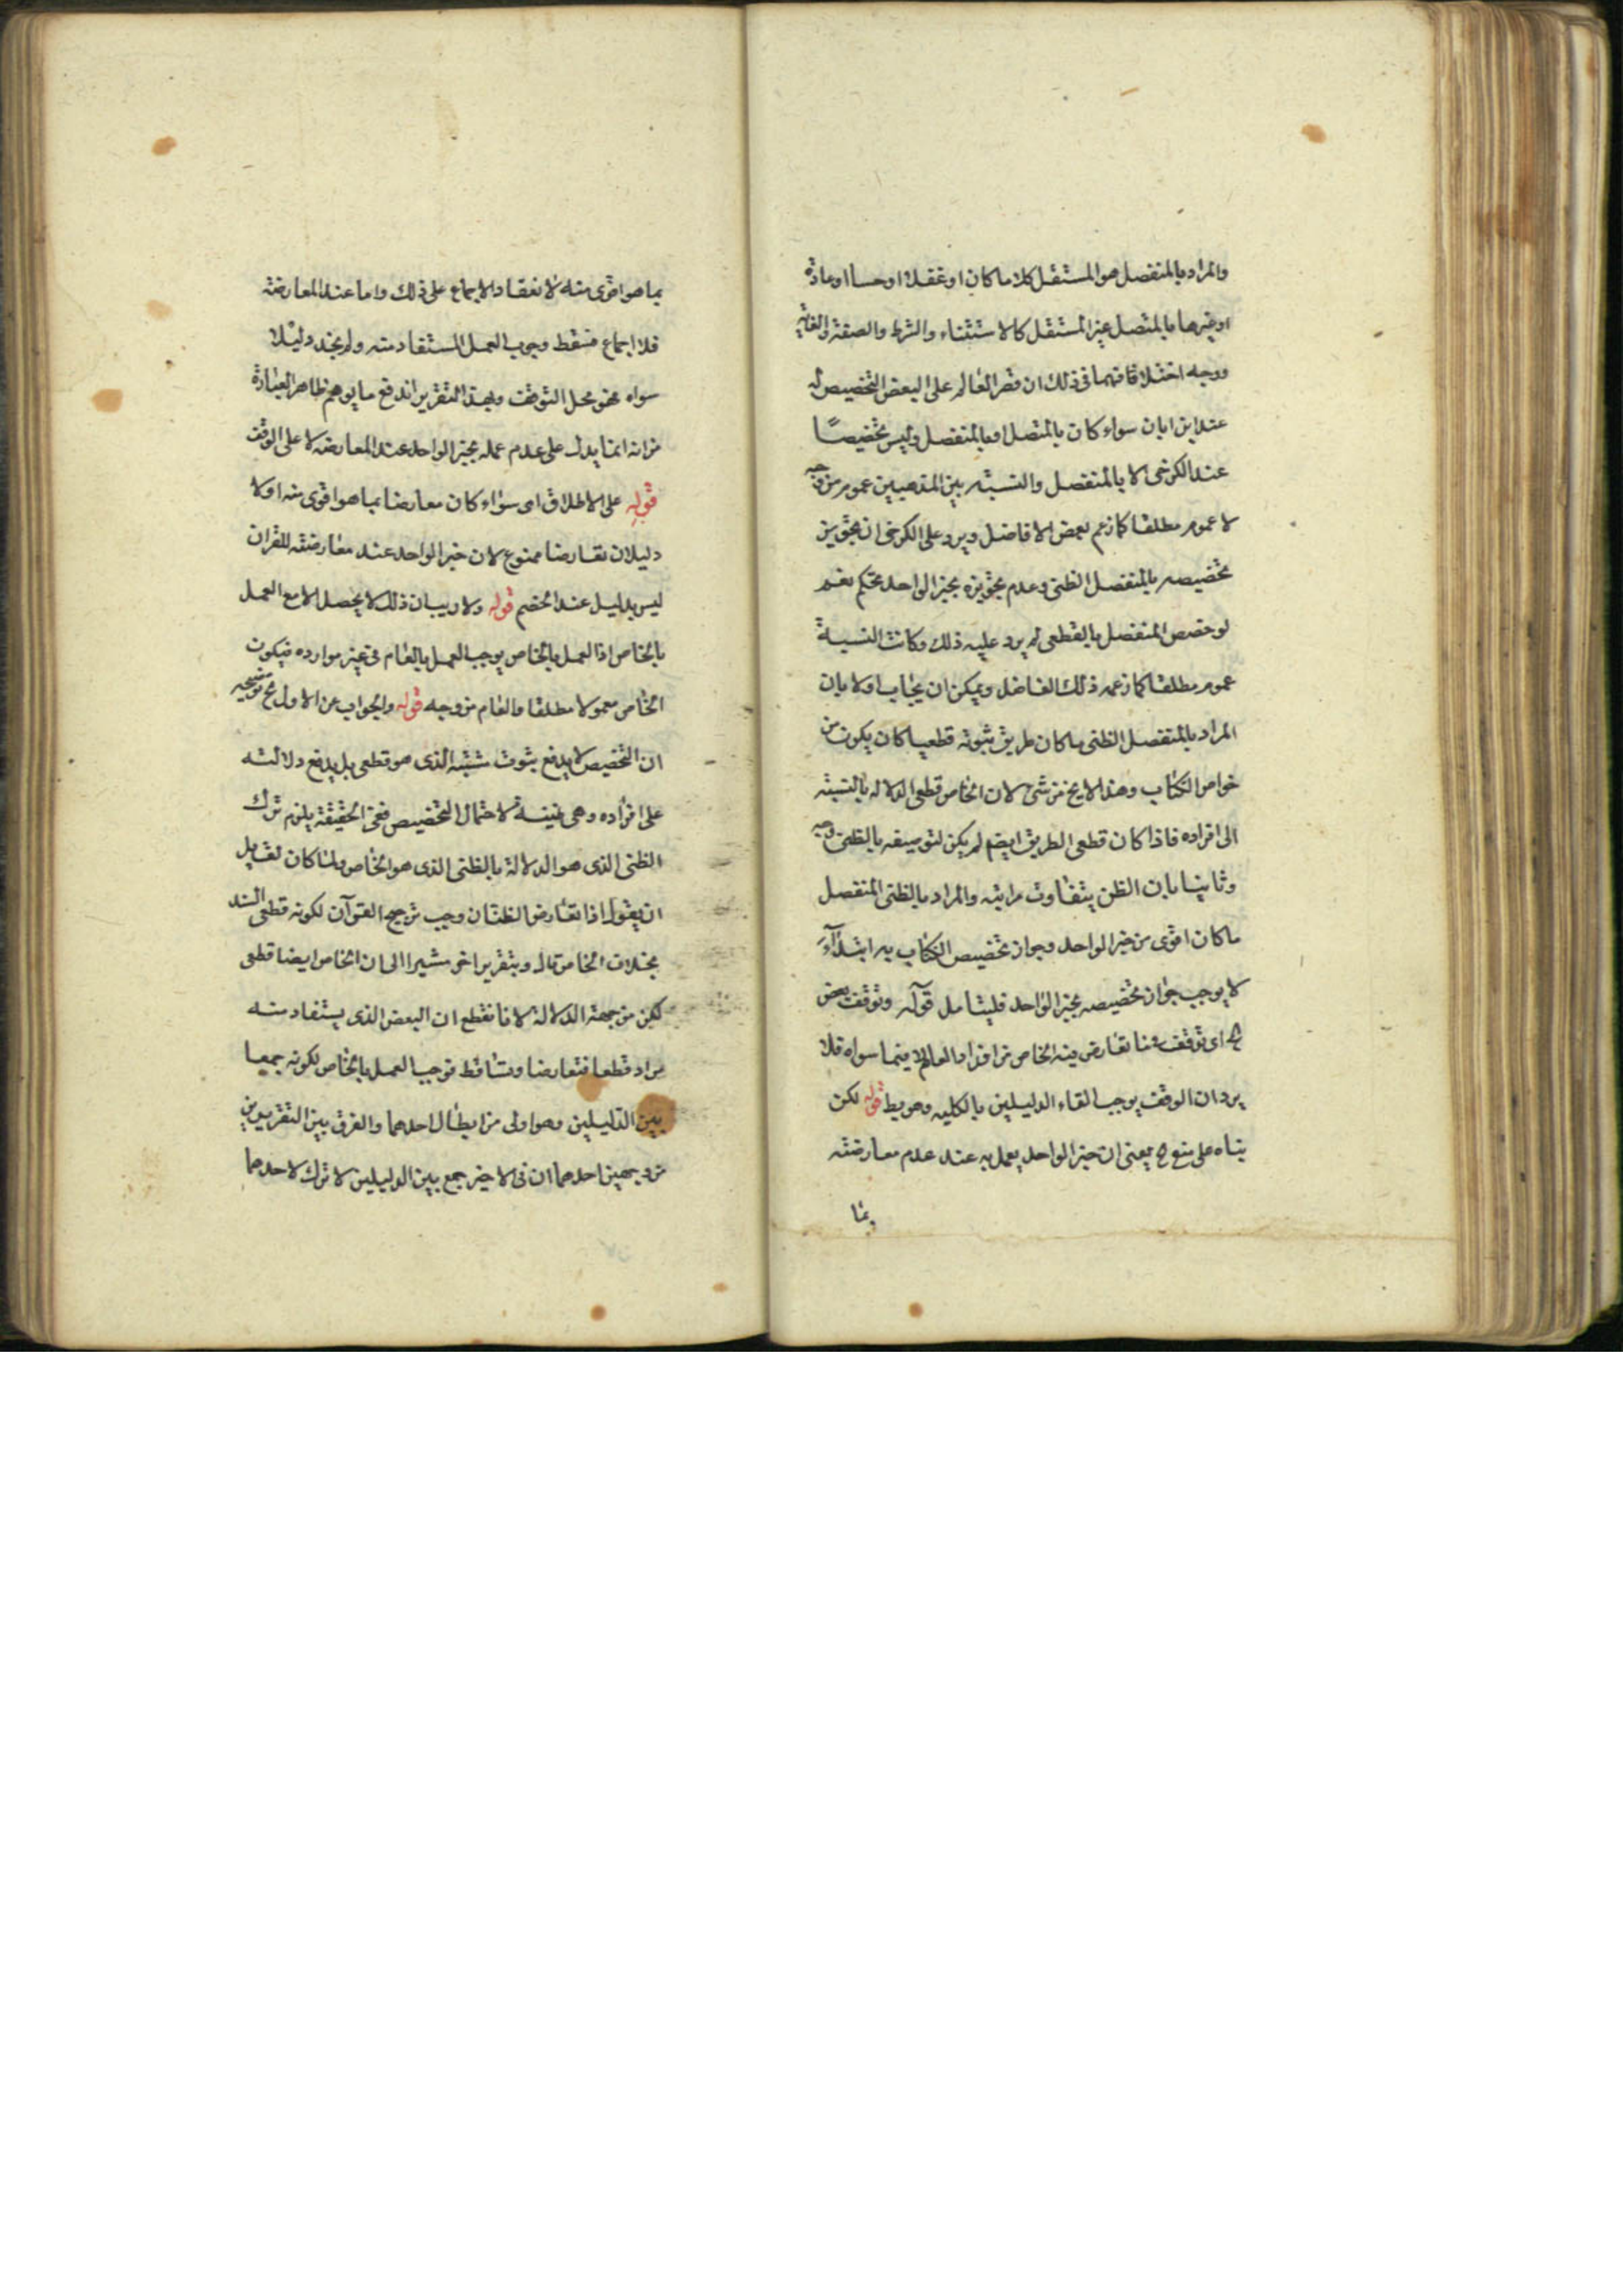 والمراد بالمنفصل هو المستقل كلاما كان او عقلا او حسا او عادة
او غيرها بالمتصل غير المستقل كالاستثناء والشرط والصفة والغاية
ووجه اختلافهما فى ذلك ان قصر العام على البعض التخصيص له
عند ابن ابان سواء كان بالمتصل او بالمنفصل وليس تخصيصًا
عند الكرخى الا بالمنفصل والنسبة بين المذهبين عموم من وجه
لا عموم مطلقا كما زعم بعض الافاضل ويرد على الكرخى ان تجويز
تخصيصه بالمنفصل الظنى وعدم تجويزه بخبر الواحد تحكم نعم
لو خصص المنفصل بالقطعى لم يرد عليه ذلك وكانت النسبة
عموم مطلقا كما زعمه ذلك الفاضل ويمكن ان يجاب اولا بان
المراد بالمنفصل الظنى ما كان طريق ثبوته قطعيا كان يكون من
خواص الكتاب وهذا لايخ من شئ لان الخاص قطعى الدلالة بالنسبة
الى افراده فاذا كان قطعى الطريق ايضا لم يكن لتوصيفه بالظنى وجه
وثانيا بان الظن يتفاوت مراتبه والمراد بالظنى المنفصل
ما كان اقوى من خبر الواحد وجواز تخصيص الكتاب به ابتداءً
لا يوجب جواز تخصيصه بخبر الواحد فليتامل قوله وتوقف بعض
اى توقف فيما تعارض فيه الخاص من افراد العام لا فيما سواه فلا
يرد ان الوقف يوجب القاء الدليلين بالكلية وهو بط قوله لكن
بناه على منع بمعنى ان خبر الواحد يعمل به عند عدم معارضته
بما
بما هو اقوى منه لانعقاد الاجماع على ذلك واما عند المعارضة
فلا اجماع فسقط وجوب العمل المستفاد منه ولم نجد دليلا
سواه محل التوقف وبهذا التقرير اندفع ما يوهم ظاهر العبارة
من انه انما يدل على عدم عمله بخبر الواحد عند المعارضة لا على الوقف
قوله على الاطلاق اى سواء كان معارضا بما هو اقوى منه اولا
دليلان تعارضا ممنوع لان خبر الواحد عند معارضته للقران
ليس بدليل عند الخصم قوله ولا ريب ان ذلك لا يحصل الا مع العمل
بالخاص اذ العمل بالخاص يوجب العمل بالعام فى غير موارده فيكون
الخاص معمولا مطلقا والعام من وجه قوله والجواب عن الاول توضيحه
ان التخصيص لا يدفع ثبوت الذى هو قطعى بل يدفع دلالته
على افراده وهى ظنية لاحتمال التخصيص ففى الحقيقة يلزم ترك
الظنى الذى هو الدلالة بالظنى الذى هو الخاص ولما كان لقايل
ان يقول اذا تعارض الظنيان وجب ترجيح القرآن لكونه قطعى السند
بخلاف الخاص قال وبتقرير اخر مشيرا الى ان الخاص ايضا قطعى
لكن من جهة الدلالة لانا نقطع ان البعض الذى يستفاد منه
مراد قطعا فتعارضا وتساقط فوجب العمل بالخاص لكونه جمعا
بين الدليلين وهو اولى من ابطال احدهما والفرق بين التقريرين
من وجهين احدهما ان فى الاخير جمع بين الدليلين لا ترك لاحدهما